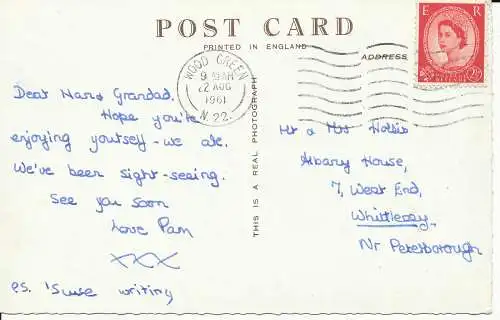 POST CARD
PRINTED IN ENGLAND
ADDRESS
E R
2½
WOOD GREEN
9 AM
22 AUG
1961
N.22.
Dear Nan & Grandad,
Hope you're
enjoying yourself - we are.
We've been sight-seeing.
See you soon
Love Pam
XXX
P.S. 'Scuse writing
THIS IS A REAL PHOTOGRAPH
Mr & Mrs Hollis
Albany House,
7, West End,
Whittlesey
Nr Peterborough